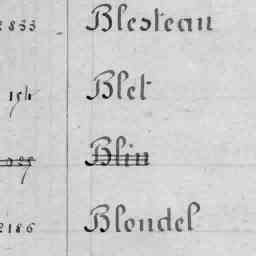 2833 Blesteau
154 Blet
Blin
2186 Blondel